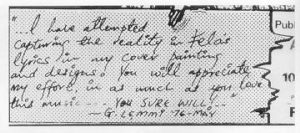 "...I have attempted
capturing the reality in Fela's
lyrics in my cover painting
and designs. You will appreciate
my effort in as much as you love
this music... YOU SURE WILL"
— G. LEMMY - 76 - MAY
Pub
10
F